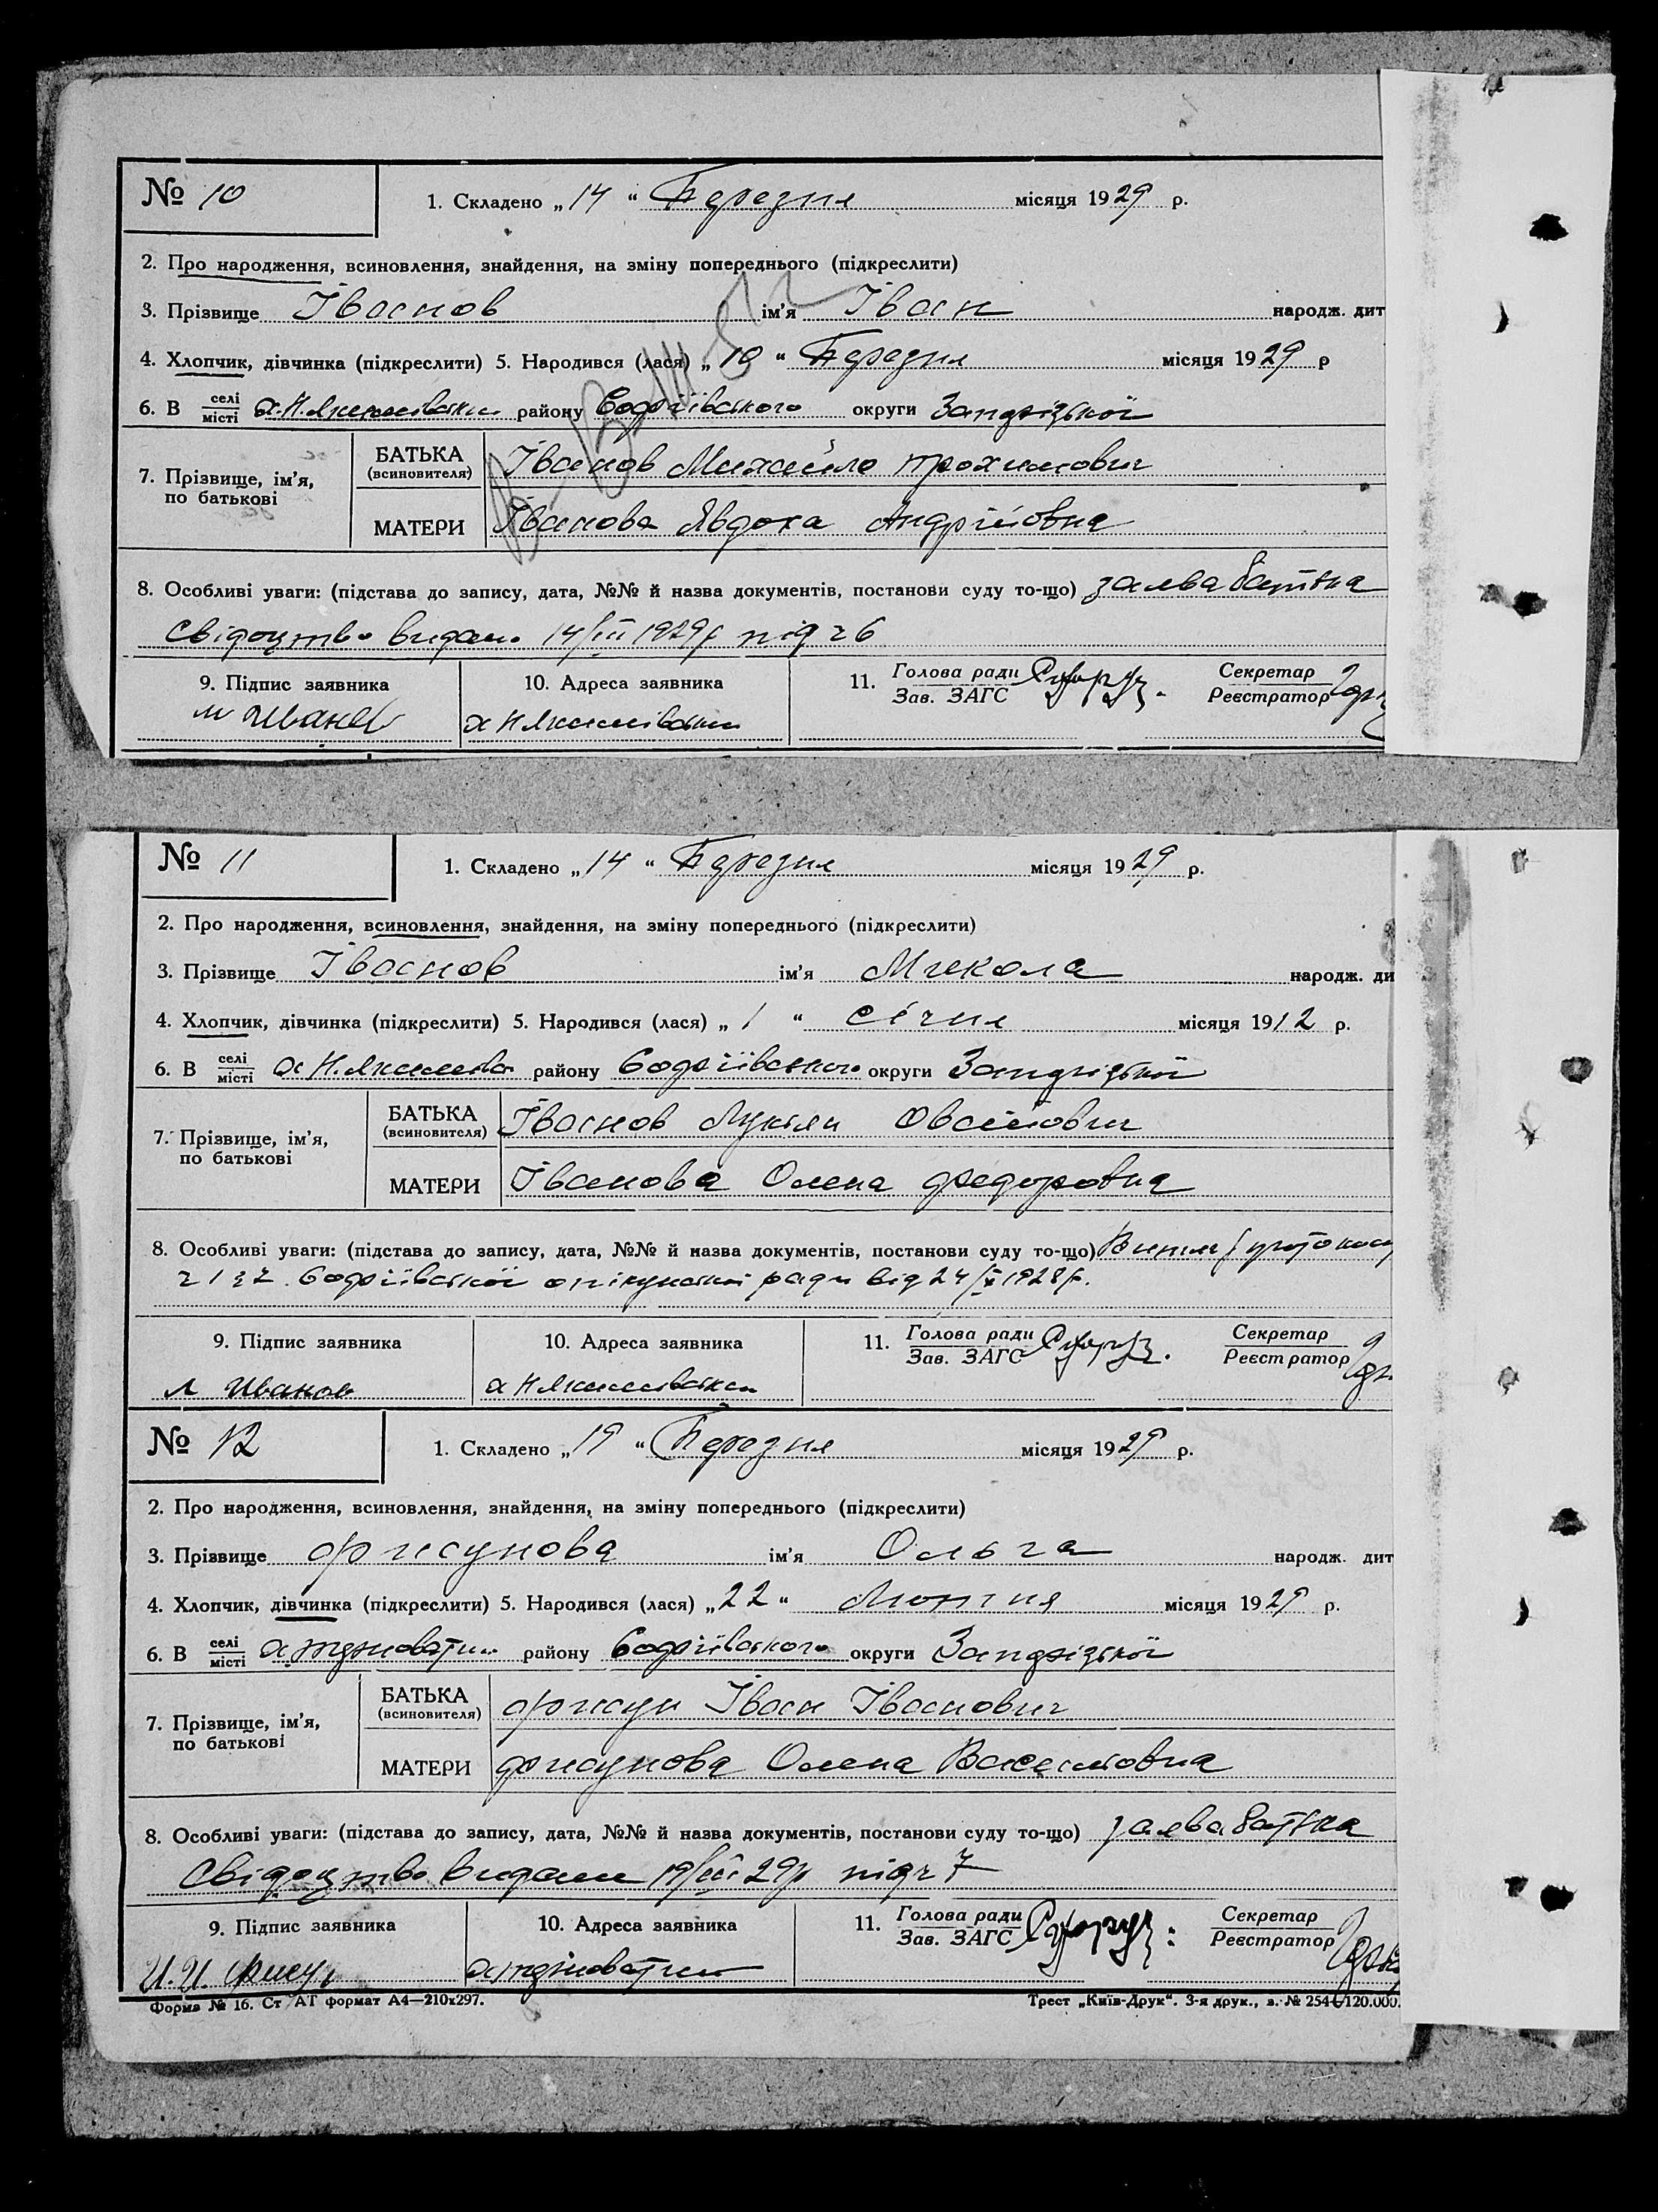 № 10
1. Складено „14“ Березня місяця 1929 р.
2. Про народження, всиновлення, знайдення, на зміну попереднього (підкреслити)
3. Прізвище Іванов ім'я Іван народж. дит
4. Хлопчик, дівчинка (підкреслити) 5. Народився (лася) „10“ Березня місяця 1929 р
6. В селі місті х. Н. Якимівка району округи Запорізької
7. Прізвище, ім'я, по батькові
БАТЬКА (всиновителя) Іванов Михайло Трохимович
МАТЕРИ Іванова Явдоха Андріївна
8. Особливі уваги: (підстава до запису, дата, №№ й назва документів, постанови суду то-що) заява батька
Свідоцтво видано 14/III 1929р під ч 6
9. Підпис заявника 10. Адреса заявника 11. Голова ради Зав. ЗАГС Секретар Реєстратор
м Иванов х Н Якимівка
№ 11
1. Складено „14“ Березня місяця 1929 р.
2. Про народження, всиновлення, знайдення, на зміну попереднього (підкреслити)
3. Прізвище Іванов ім'я Микола народж. ди
4. Хлопчик, дівчинка (підкреслити) 5. Народився (лася) „1“ січня місяця 1912 р.
6. В селі місті х Н. Якимівка району округи Запорізької
7. Прізвище, ім'я, по батькові
БАТЬКА (всиновителя) Іванов Лукіян
МАТЕРИ Іванова Олена Федоровна
8. Особливі уваги: (підстава до запису, дата, №№ й назва документів, постанови суду то-що) Витяг протокол
опікунської ради від 24/X 1928р.
9. Підпис заявника 10. Адреса заявника 11. Голова ради Зав. ЗАГС Секретар Реєстратор
л Иванов х Н Якимівка
№ 12
1. Складено „19“ Березня місяця 1929 р.
2. Про народження, всиновлення, знайдення, на зміну попереднього (підкреслити)
3. Прізвище Фисунова ім'я Ольга народж. дит
4. Хлопчик, дівчинка (підкреслити) 5. Народився (лася) „22“ Лютня місяця 1929 р.
6. В селі місті району округи Запорізької
7. Прізвище, ім'я, по батькові
БАТЬКА (всиновителя) Фисун Іван Іванович
МАТЕРИ Фисунова Олена
8. Особливі уваги: (підстава до запису, дата, №№ й назва документів, постанови суду то-що) заява батька
Свідоцтво видано 19/III 29р під ч 7
9. Підпис заявника 10. Адреса заявника 11. Голова ради Зав. ЗАГС Секретар Реєстратор
И. И. Фисун
Форма № 16. Ст АТ формат А4—210х297. Трест „Київ-Друк“. 3-я друк., з. № 254—120.000.